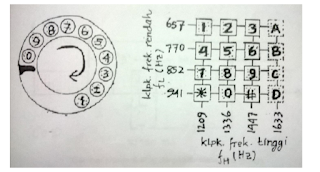 0 9 8 7 6 5 4 3 2 1
klpk frek rendah
fL (Hz)
657 1 2 3 A
770 4 5 6 B
852 7 8 9 C
941 * 0 # D
1209 1336 1447 1633
klpk. frek. tinggi
fH (Hz)